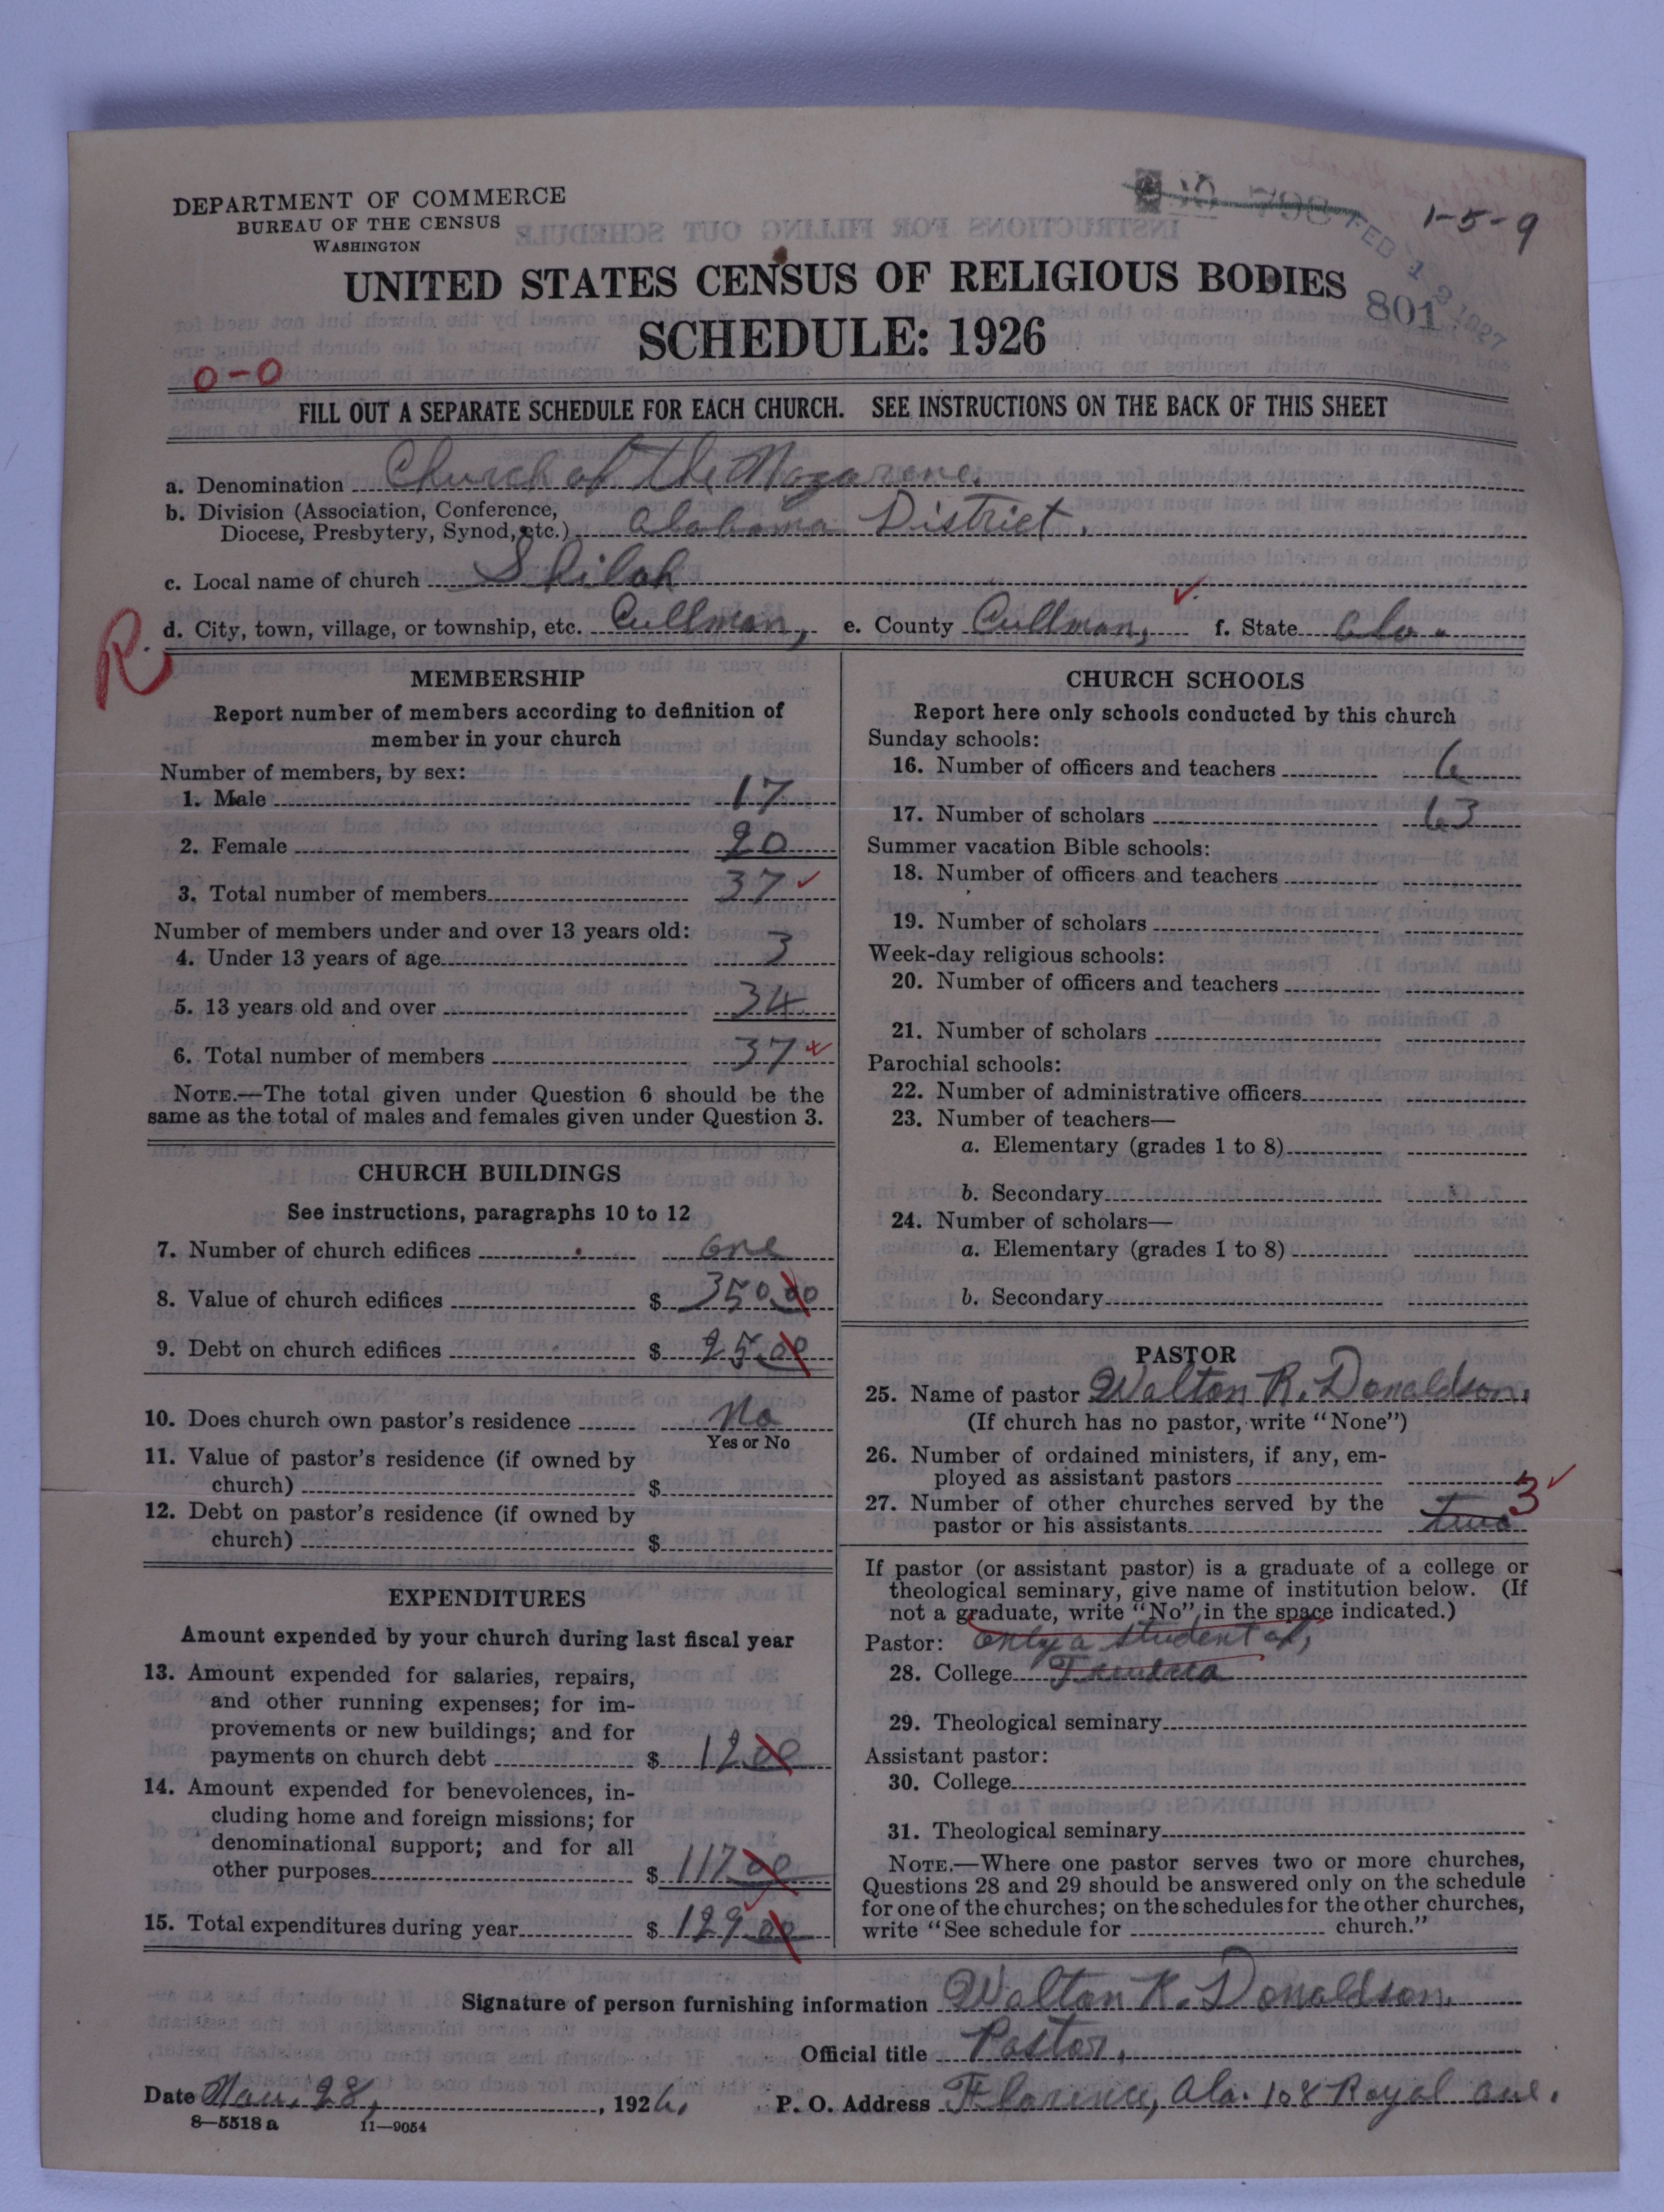 DEPARTMENT OF COMMERCE
BUREAU OF THE CENSUS
WASHINGTON
1-5-9
FEB 1 2 1927
801
UNITED STATES CENSUS OF RELIGIOUS BODIES
SCHEDULE: 1926
0-0
FILL OUT A SEPARATE SCHEDULE FOR EACH CHURCH. SEE INSTRUCTIONS ON THE BACK OF THIS SHEET
a. Denomination Church of the Nazarene.
b. Division (Association, Conference,
Diocese, Presbytery, Synod, etc.) Alabama District.
c. Local name of church Shiloh
d. City, town, village, or township, etc. Cullman, e. County Cullman, f. State Ala.
R.
MEMBERSHIP
Report number of members according to definition of
member in your church
Number of members, by sex:
1. Male 17
2. Female 20
3. Total number of members 37
Number of members under and over 13 years old:
4. Under 13 years of age 3
5. 13 years old and over 34
6. Total number of members 37
NOTE.—The total given under Question 6 should be the
same as the total of males and females given under Question 3.
CHURCH BUILDINGS
See instructions, paragraphs 10 to 12
7. Number of church edifices one
8. Value of church edifices $ 350.00
9. Debt on church edifices $ 25.00
10. Does church own pastor's residence No
Yes or No
11. Value of pastor's residence (if owned by
church) $
12. Debt on pastor's residence (if owned by
church) $
EXPENDITURES
Amount expended by your church during last fiscal year
13. Amount expended for salaries, repairs,
and other running expenses; for im-
provements or new buildings; and for
payments on church debt $ 12.00
14. Amount expended for benevolences, in-
cluding home and foreign missions; for
denominational support; and for all
other purposes $ 117.00
15. Total expenditures during year $ 129.00
CHURCH SCHOOLS
Report here only schools conducted by this church
Sunday schools:
16. Number of officers and teachers 6
17. Number of scholars 63
Summer vacation Bible schools:
18. Number of officers and teachers
19. Number of scholars
Week-day religious schools:
20. Number of officers and teachers
21. Number of scholars
Parochial schools:
22. Number of administrative officers
23. Number of teachers—
a. Elementary (grades 1 to 8)
b. Secondary
24. Number of scholars—
a. Elementary (grades 1 to 8)
b. Secondary
PASTOR
25. Name of pastor Walton R. Donaldson.
(If church has no pastor, write "None")
26. Number of ordained ministers, if any, em-
ployed as assistant pastors
27. Number of other churches served by the
pastor or his assistants two 3
If pastor (or assistant pastor) is a graduate of a college or
theological seminary, give name of institution below. (If
not a graduate, write "No" in the space indicated.)
Pastor: Only a student at,
28. College
29. Theological seminary
Assistant pastor:
30. College
31. Theological seminary
NOTE.—Where one pastor serves two or more churches,
Questions 28 and 29 should be answered only on the schedule
for one of the churches; on the schedules for the other churches,
write "See schedule for church."
Signature of person furnishing information Walton R. Donaldson.
Official title Pastor.
Date 28, 1926. P. O. Address Florence, Ala. 108 Royal ave.
8—5518 a 11—9054